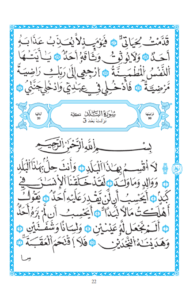 قَدَّمْتُ لِحَيَاتِي فَيَوْمَئِذٍ لَّا يُعَذِّبُ عَذَابَهُ
أَحَدٌ وَلَا يُوثِقُ وَثَاقَهُ أَحَدٌ يَا أَيَّتُهَا
النَّفْسُ الْمُطْمَئِنَّةُ ارْجِعِي إِلَى رَبِّكِ رَاضِيَةً
مَّرْضِيَّةً فَادْخُلِي فِي عِبَادِي وَادْخُلِي جَنَّتِي
سُورَةُ الْبَلَدِ
بِسْمِ اللَّهِ الرَّحْمَٰنِ الرَّحِيمِ
لَا أُقْسِمُ بِهَٰذَا الْبَلَدِ وَأَنتَ حِلٌّ بِهَٰذَا الْبَلَدِ
وَوَالِدٍ وَمَا وَلَدَ لَقَدْ خَلَقْنَا الْإِنسَانَ فِي
كَبَدٍ أَيَحْسَبُ أَن لَّن يَقْدِرَ عَلَيْهِ أَحَدٌ يَقُولُ
أَهْلَكْتُ مَالًا لُّبَدًا أَيَحْسَبُ أَن لَّمْ يَرَهُ أَحَدٌ
أَلَمْ نَجْعَل لَّهُ عَيْنَيْنِ وَلِسَانًا وَشَفَتَيْنِ
وَهَدَيْنَاهُ النَّجْدَيْنِ فَلَا اقْتَحَمَ الْعَقَبَةَ
وما
22